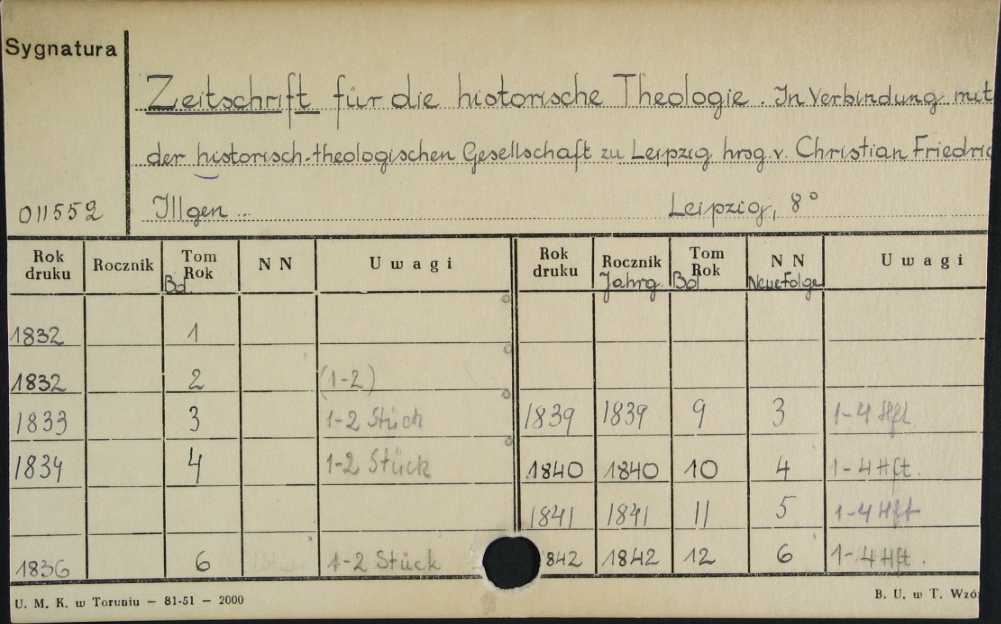 Sygnatura
Zeitschrift für die historische Theologie. In Verbindung mit
der historisch-theologischen Gesellschaft zu Leipzig hrsg. v. Christian Friedric
011552 Illgen Leipzig, 8°
Rok druku Rocznik Tom Rok Bd. N N Uwagi Rok druku Rocznik Jahrg. Tom Rok Bd N N Neue Folge Uwagi
1832 1
1832 2 (1-2)
1833 3 1-2 Stück 1839 1839 9 3 1-4 Hft.
1834 4 1-2 Stück 1840 1840 10 4 1-4 Hft.
1841 1841 11 5 1-4 Hft
1836 6 1-2 Stück 1842 1842 12 6 1-4 Hft.
U. M. K. w Toruniu – 81-51 – 2000 B. U. w T. Wzó